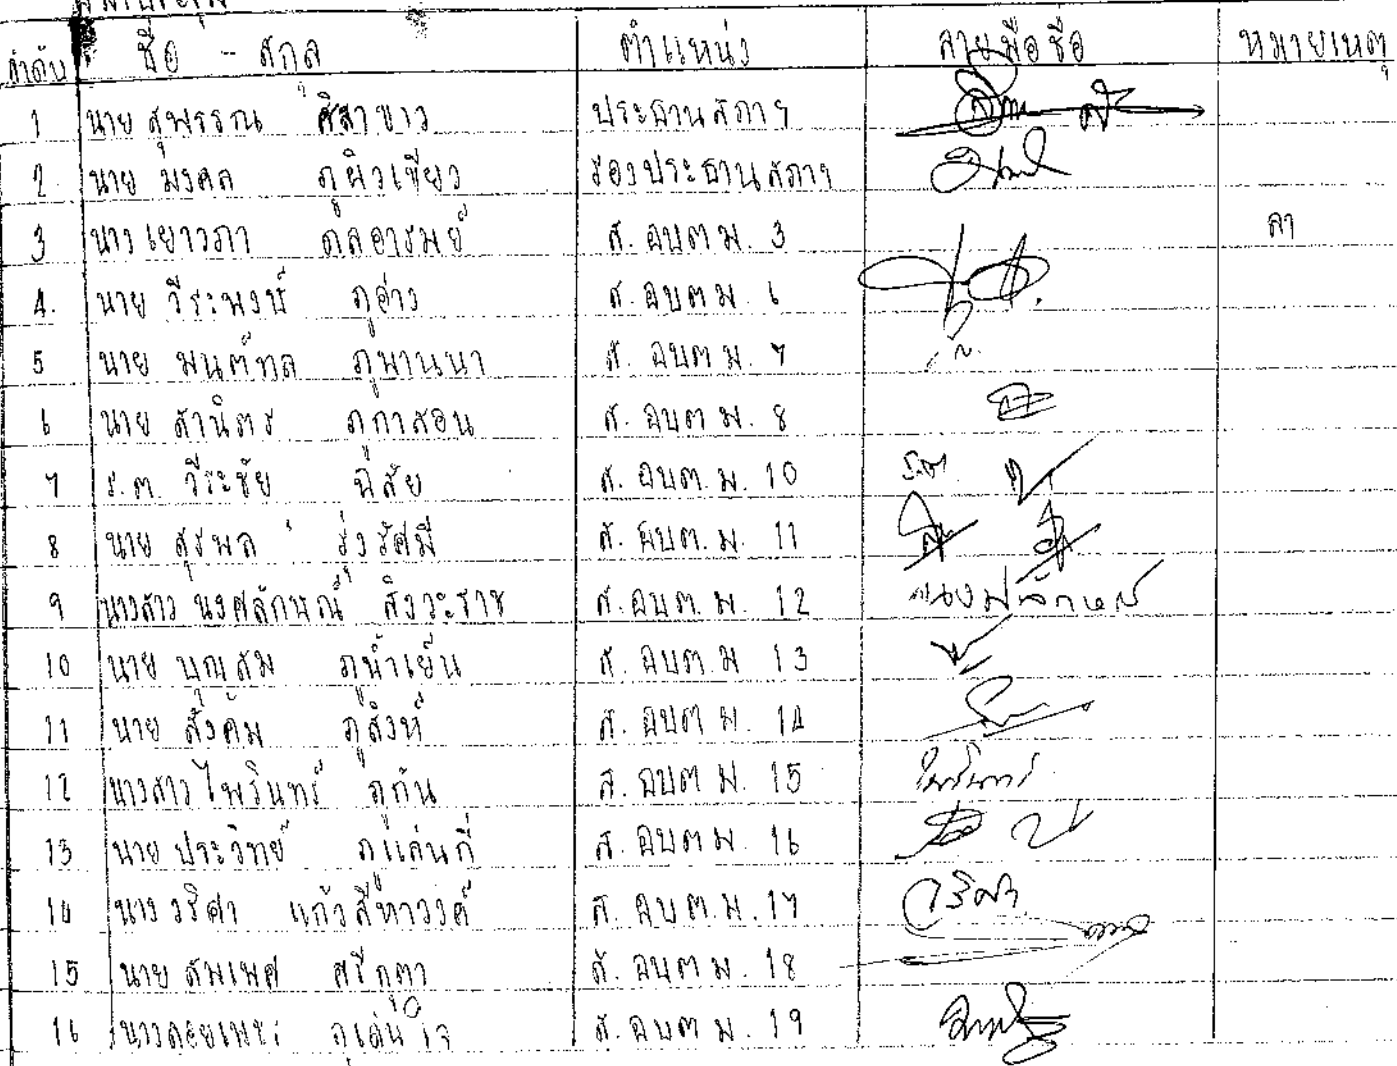 ลำดับ ชื่อ - สกุล ตำแหน่ง ลายมือชื่อ หมายเหตุ
1 นาย สุพรรณ ศิลาขาว ประธานสภาฯ
2. นาย มงคล ภูผิวเขียว รองประธานสภาฯ
3 นาง เยาวภา ดลอารมย์ ส. อบต ม. 3 ลา
4. นาย วีระพงษ์ ภูอ่าง ส. อบต ม. 6
5 นาย มนต์ทล ภูพานนา ส. อบต ม. 7
6 นาย สานิตร ภูกาสอน ส. อบต ม. 8
7 ร.ต. วีระชัย ฉิสัย ส. อบต. ม. 10 ร.ต.
8 นาย สุรพล รุ่งรัศมี ส. อบต. ม. 11
9 นางสาว นงศลักษณ์ สิงวะราช ส. อบต. ม. 12
10 นาย บุญสม ภูน้ำเย็น ส. อบต. ม 13
11 นาย สังคม ภูสิงห์ ส. อบต ม. 14
12 นางสาว ไพรินทร์ ภูกัน ส. อบต ม. 15 ไพรินทร์
13 นาย ประวิทย์ ภูแล่นกี่ ส. อบต ม. 16
14 นาง วริศา แก้วสีหาวงค์ ส. อบต. ม. 17 วริศา
15 นาย สมเพศ ศรีกุตา ส. อบต ม. 18
16 ส. อบต ม. 19